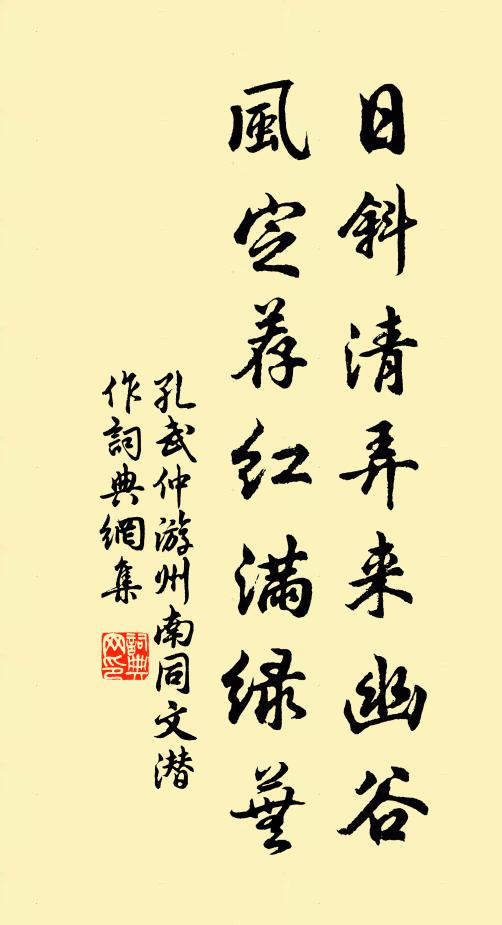 日斜清弄来幽谷
風定荐红满緑蕪
孔武仲游州南同文潜
作詞典網集
詞典网印